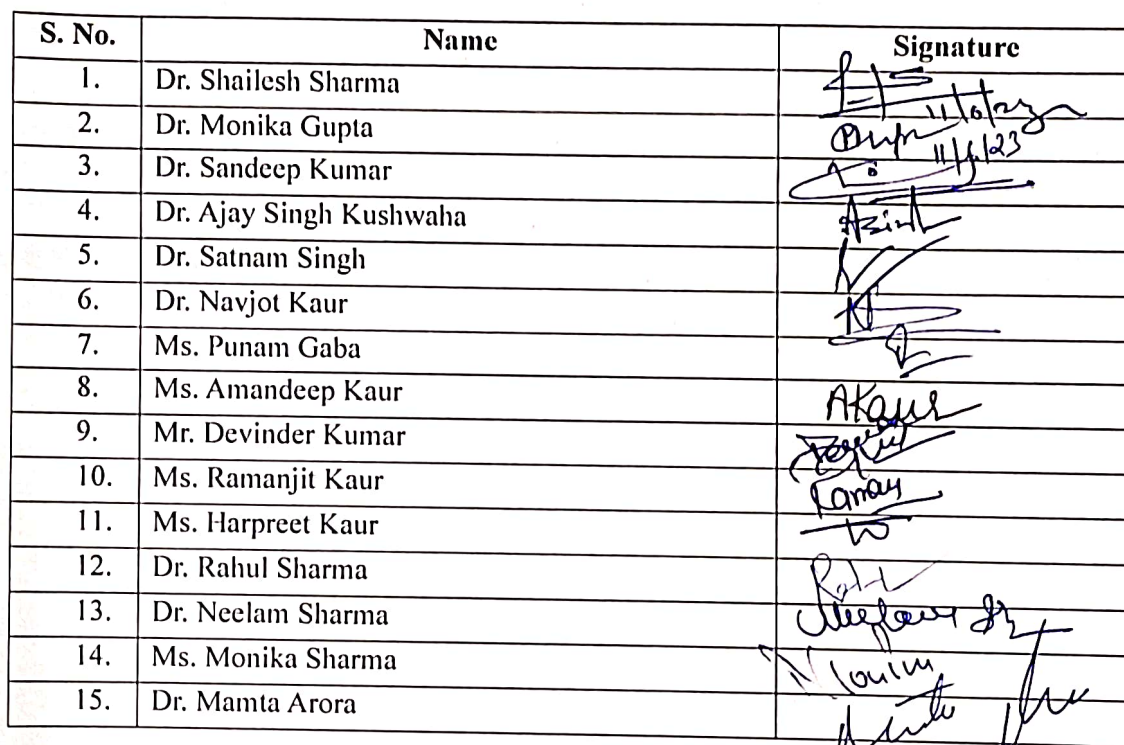 S. No. Name Signature
1. Dr. Shailesh Sharma
2. Dr. Monika Gupta 11/6/23
3. Dr. Sandeep Kumar 11/6/23
4. Dr. Ajay Singh Kushwaha
5. Dr. Satnam Singh
6. Dr. Navjot Kaur
7. Ms. Punam Gaba
8. Ms. Amandeep Kaur AKaur
9. Mr. Devinder Kumar
10. Ms. Ramanjit Kaur Raman
11. Ms. Harpreet Kaur
12. Dr. Rahul Sharma
13. Dr. Neelam Sharma
14. Ms. Monika Sharma
15. Dr. Mamta Arora